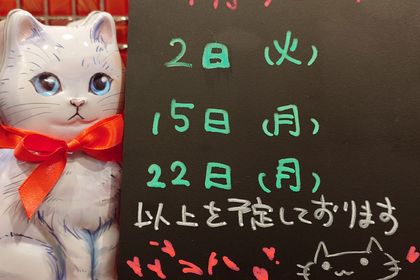 2日（火）
15日（月）
22日（月）
以上を予定しております